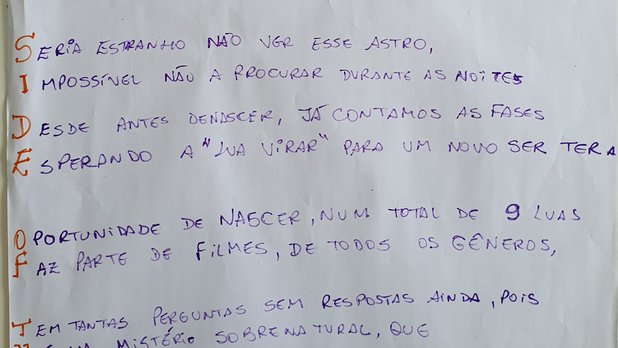 SERIA ESTRANHO NÃO VER ESSE ASTRO,
IMPOSSÍVEL NÃO A PROCURAR DURANTE AS NOITES
DESDE ANTES DENASCER, JÁ CONTAMOS AS FASES
ESPERANDO A "LUA VIRAR" PARA UM NOVO SER TER A
OPORTUNIDADE DE NASCER, NUM TOTAL DE 9 LUAS
FAZ PARTE DE FILMES, DE TODOS OS GÊNEROS,
TEM TANTAS PERGUNTAS SEM RESPOSTAS AINDA, POIS
MISTÉRIO SOBRENATURAL, QUE